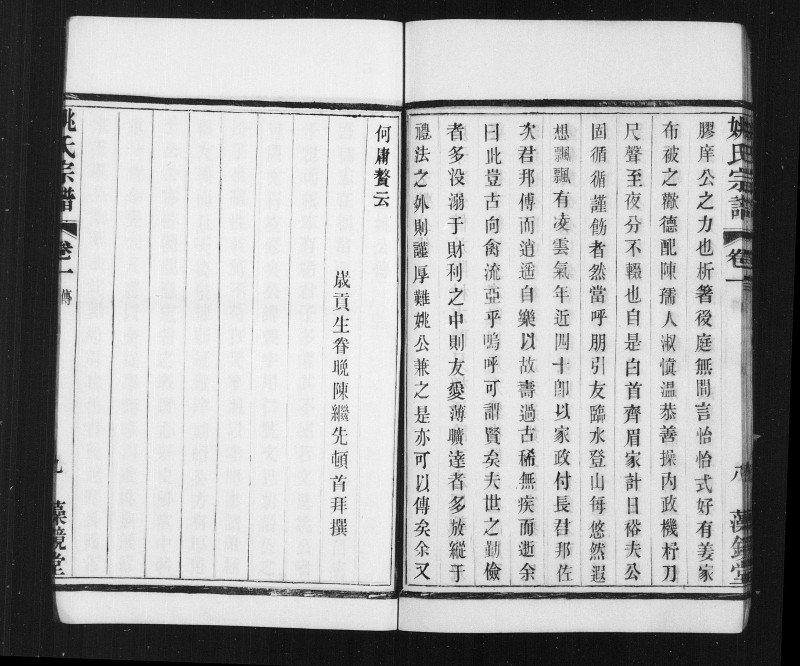 姚氏宗譜
卷一
八
藻鏡堂
膠庠公之力也析箸後庭無間言怡怡式好有姜家
布被之歡德配陳孺人淑慎温恭善操内政機杼刀
尺聲至夜分不輟也自是白首齊眉家計日裕夫公
固循循謹飭者然當呼朋引友臨水登山每悠然遐
想飄飄有凌雲氣年近四十卽以家政付長君那佐
次君邦傅而逍遥自樂以故壽過古稀無疾而逝余
曰此豈古向禽流亞乎嗚呼可謂賢矣夫世之勤儉
者多没溺于財利之中則友愛薄曠達者多放縱于
禮法之外則謹厚難姚公兼之是亦可以傳矣余又
何庸贅云
歲貢生眷晚陳繼先頓首拜撰
姚氏宗譜
卷一
傳
九
藻鏡堂